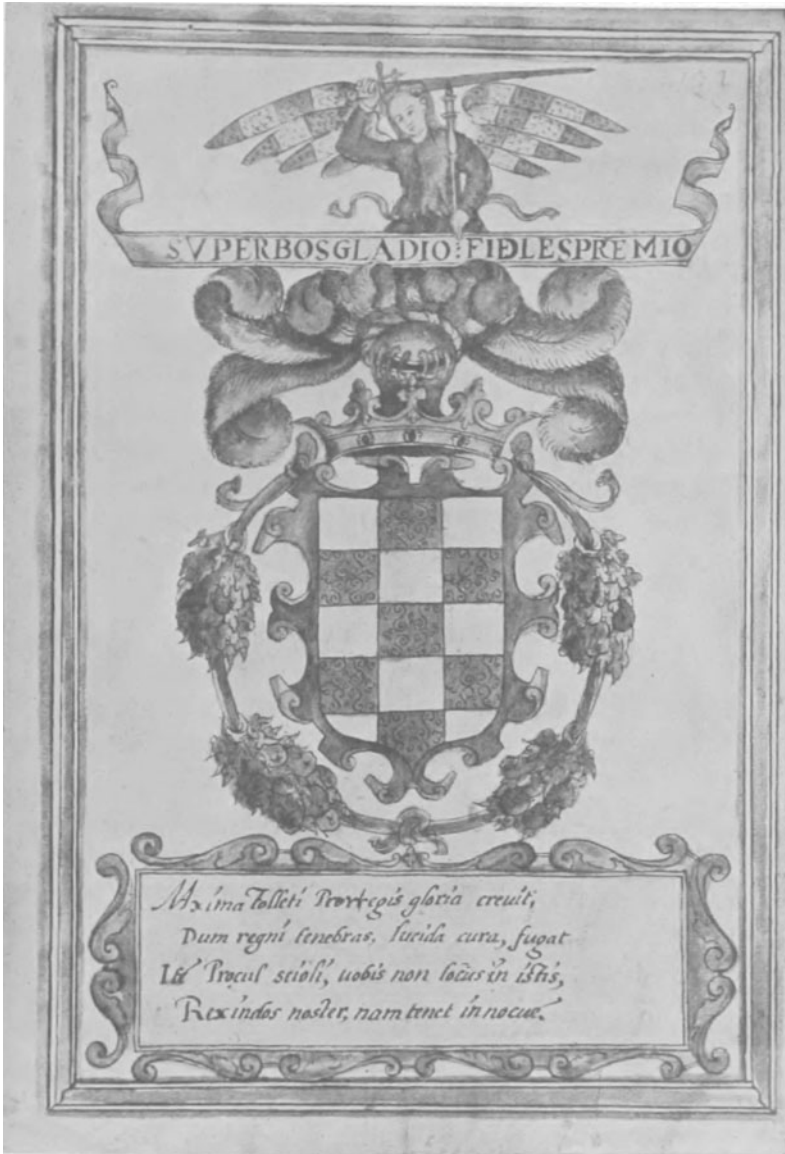 SVPERBOS GLADIO : FIDLES PREMIO
Maxima Tolleti Prorregis gloria creuit,
Dum regni tenebras, lucida cura, fugat
Ite Procul scioli, uobis non locus in istis,
Rex indos noster, nam tenet innocue.